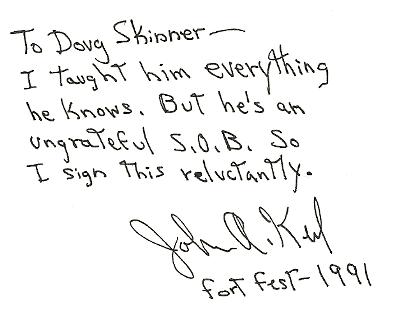 To Doug Skinner—
I taught him everything
he knows. But he's an
ungrateful S.O.B. So
I sign this reluctantly.
John A. Keel
Fort Fest-1991